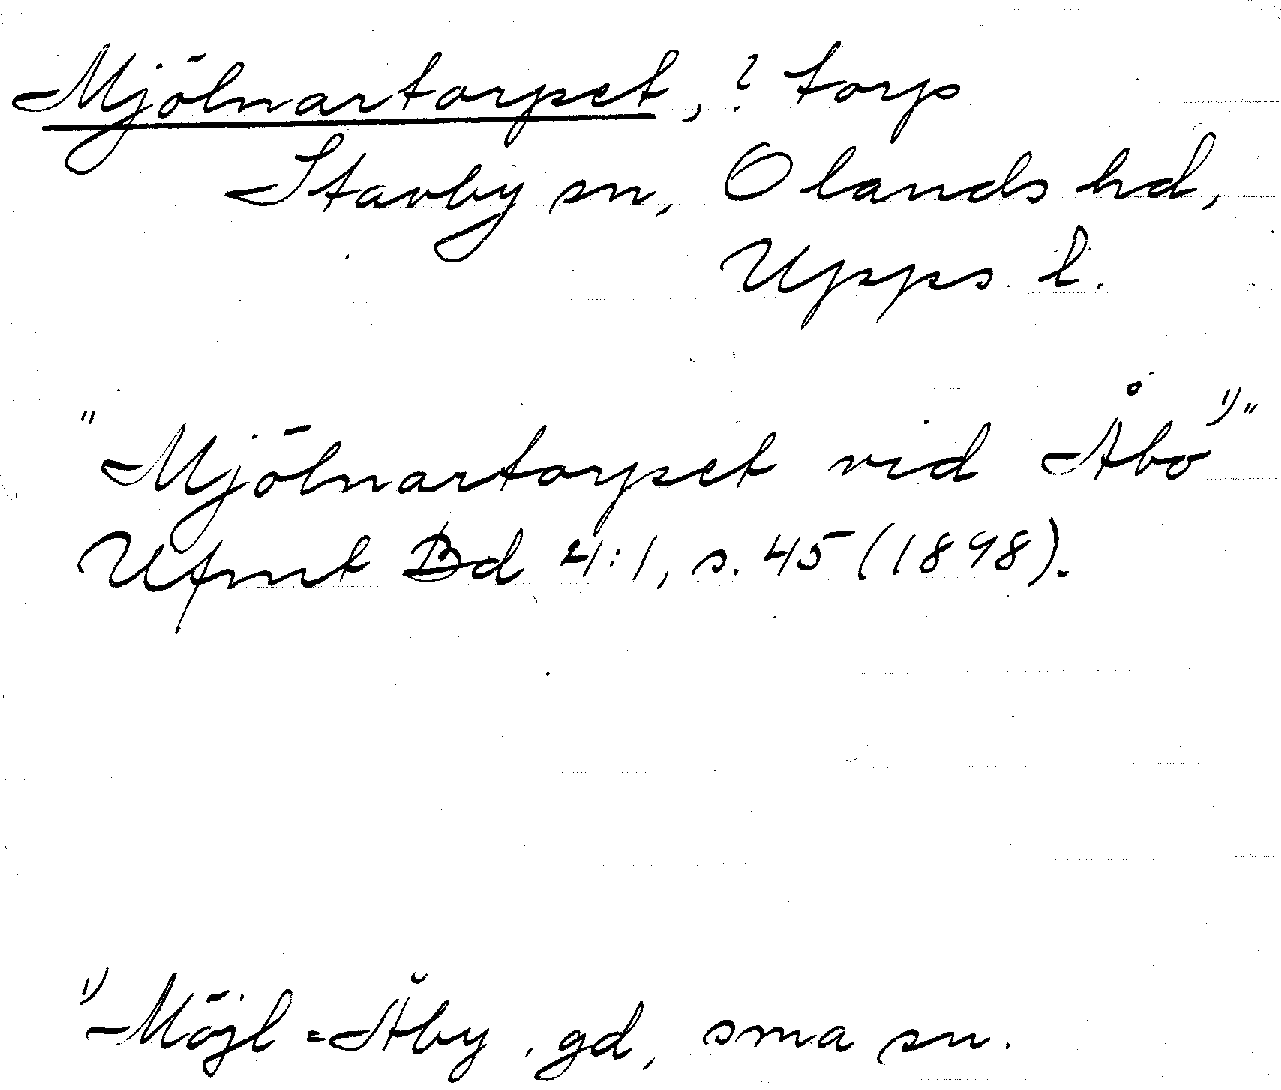 Mjölnartorpet, ? torp
Stavby sn, Olands hd,
Upps l.
"Mjölnartorpet vid Åbo 1)"
Ufmt Bd 4:1, s. 45 (1898).
1) Möjl = Åby, gd, sma sn.